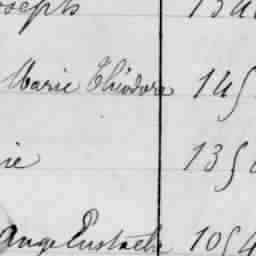 oseph 134
Marie Théodore 145
ie 135
ange Eustache 1054